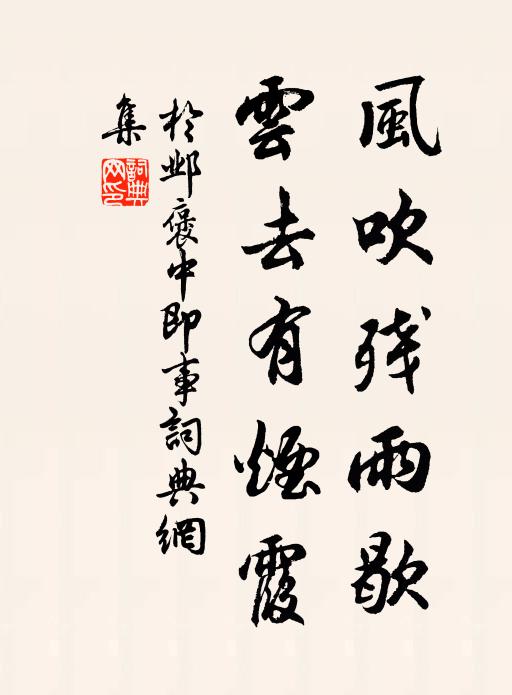 風吹残雨歇
雲去有煙霞
於鄴褒中即事詞典網
集
詞典網印